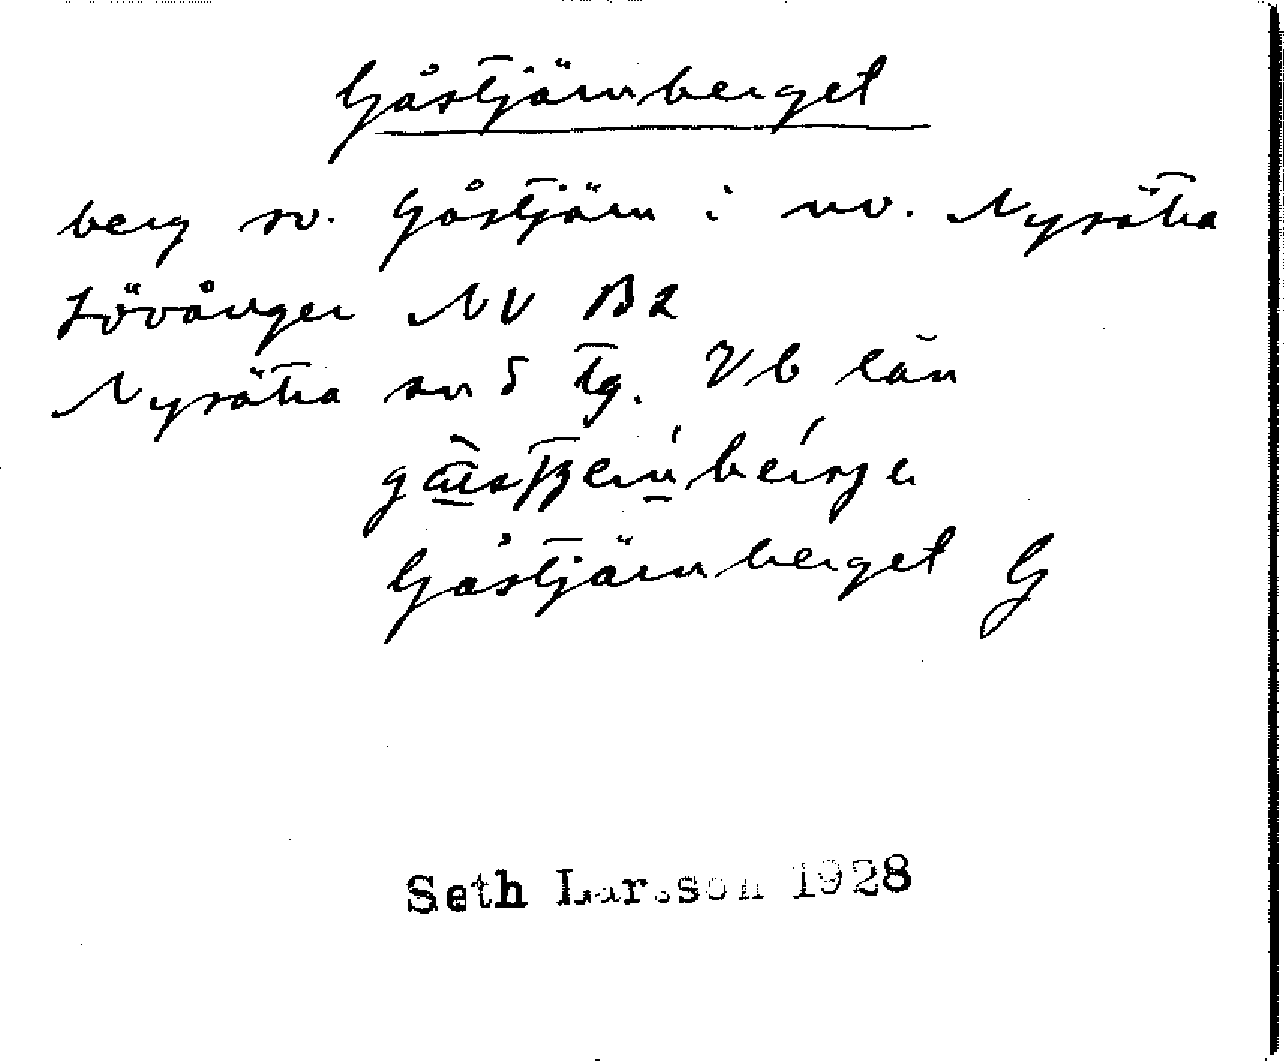 Gåstjärnberget
berg sv. Gåstjärn i nv. Nysätra
Lövånger NV B2
Nysätra sn 5 tg. Vb län
Gåstjärnberget G
Seth Larsson 1928